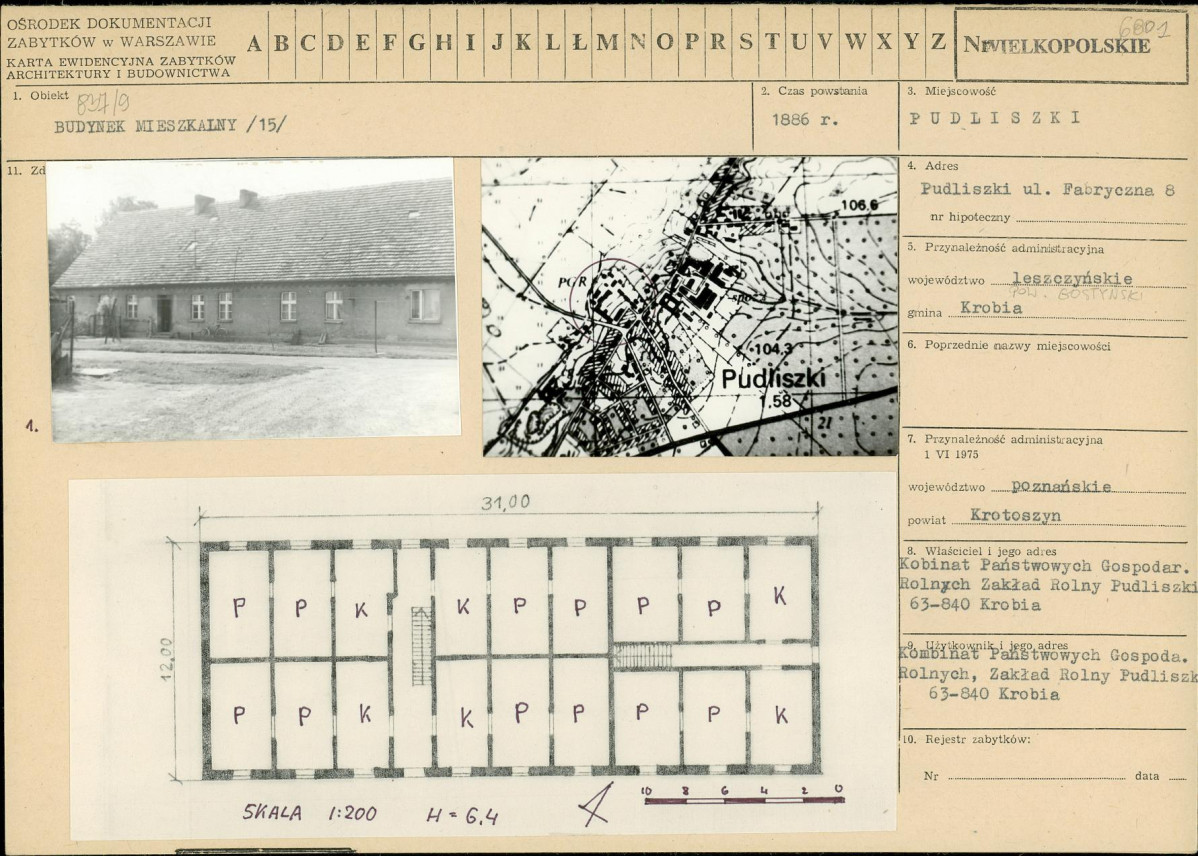 OŚRODEK DOKUMENTACJI
ZABYTKÓW w WARSZAWIE
KARTA EWIDENCYJNA ZABYTKÓW
ARCHITEKTURY I BUDOWNICTWA
A B C D E F G H I J K L Ł M N O P R S T U V W X Y Z
Nr WIELKOPOLSKIE
6801
1. Obiekt
837/9
BUDYNEK MIESZKALNY /15/
2. Czas powstania
1886 r.
3. Miejscowość
PUDLISZKI
4. Adres
Pudliszki ul. Fabryczna 8
nr hipoteczny
5. Przynależność administracyjna
województwo leszczyńskie
POW. GOSTYŃSKI
gmina Krobia
6. Poprzednie nazwy miejscowości
7. Przynależność administracyjna
1 VI 1975
województwo poznańskie
powiat Krotoszyn
8. Właściciel i jego adres
Kobinat Państwowych Gospodar.
Rolnych Zakład Rolny Pudliszki
63-840 Krobia
9. Użytkownik i jego adres
Kombinat Państwowych Gospoda.
Rolnych, Zakład Rolny Pudliszk
63-840 Krobia
10. Rejestr zabytków:
Nr data
11. Zd
1.
106,6
PGR
104,3
Pudliszki
1.58
21
31,00
12,00
P P K K P P P P K
P P K K P P P P K
SKALA 1:200 H = 6,4
10 8 6 4 2 0